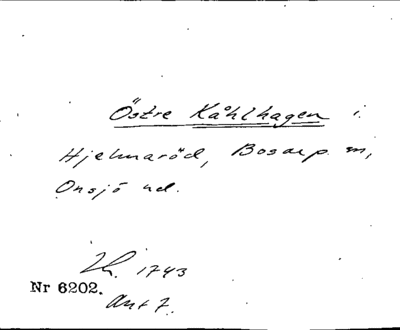 Östre Kåhlhagen i.
Hjelmaröd, Bosarp. m,
Onsjö hd.
Lh. 1743
Nr 6202.
Akt 7.